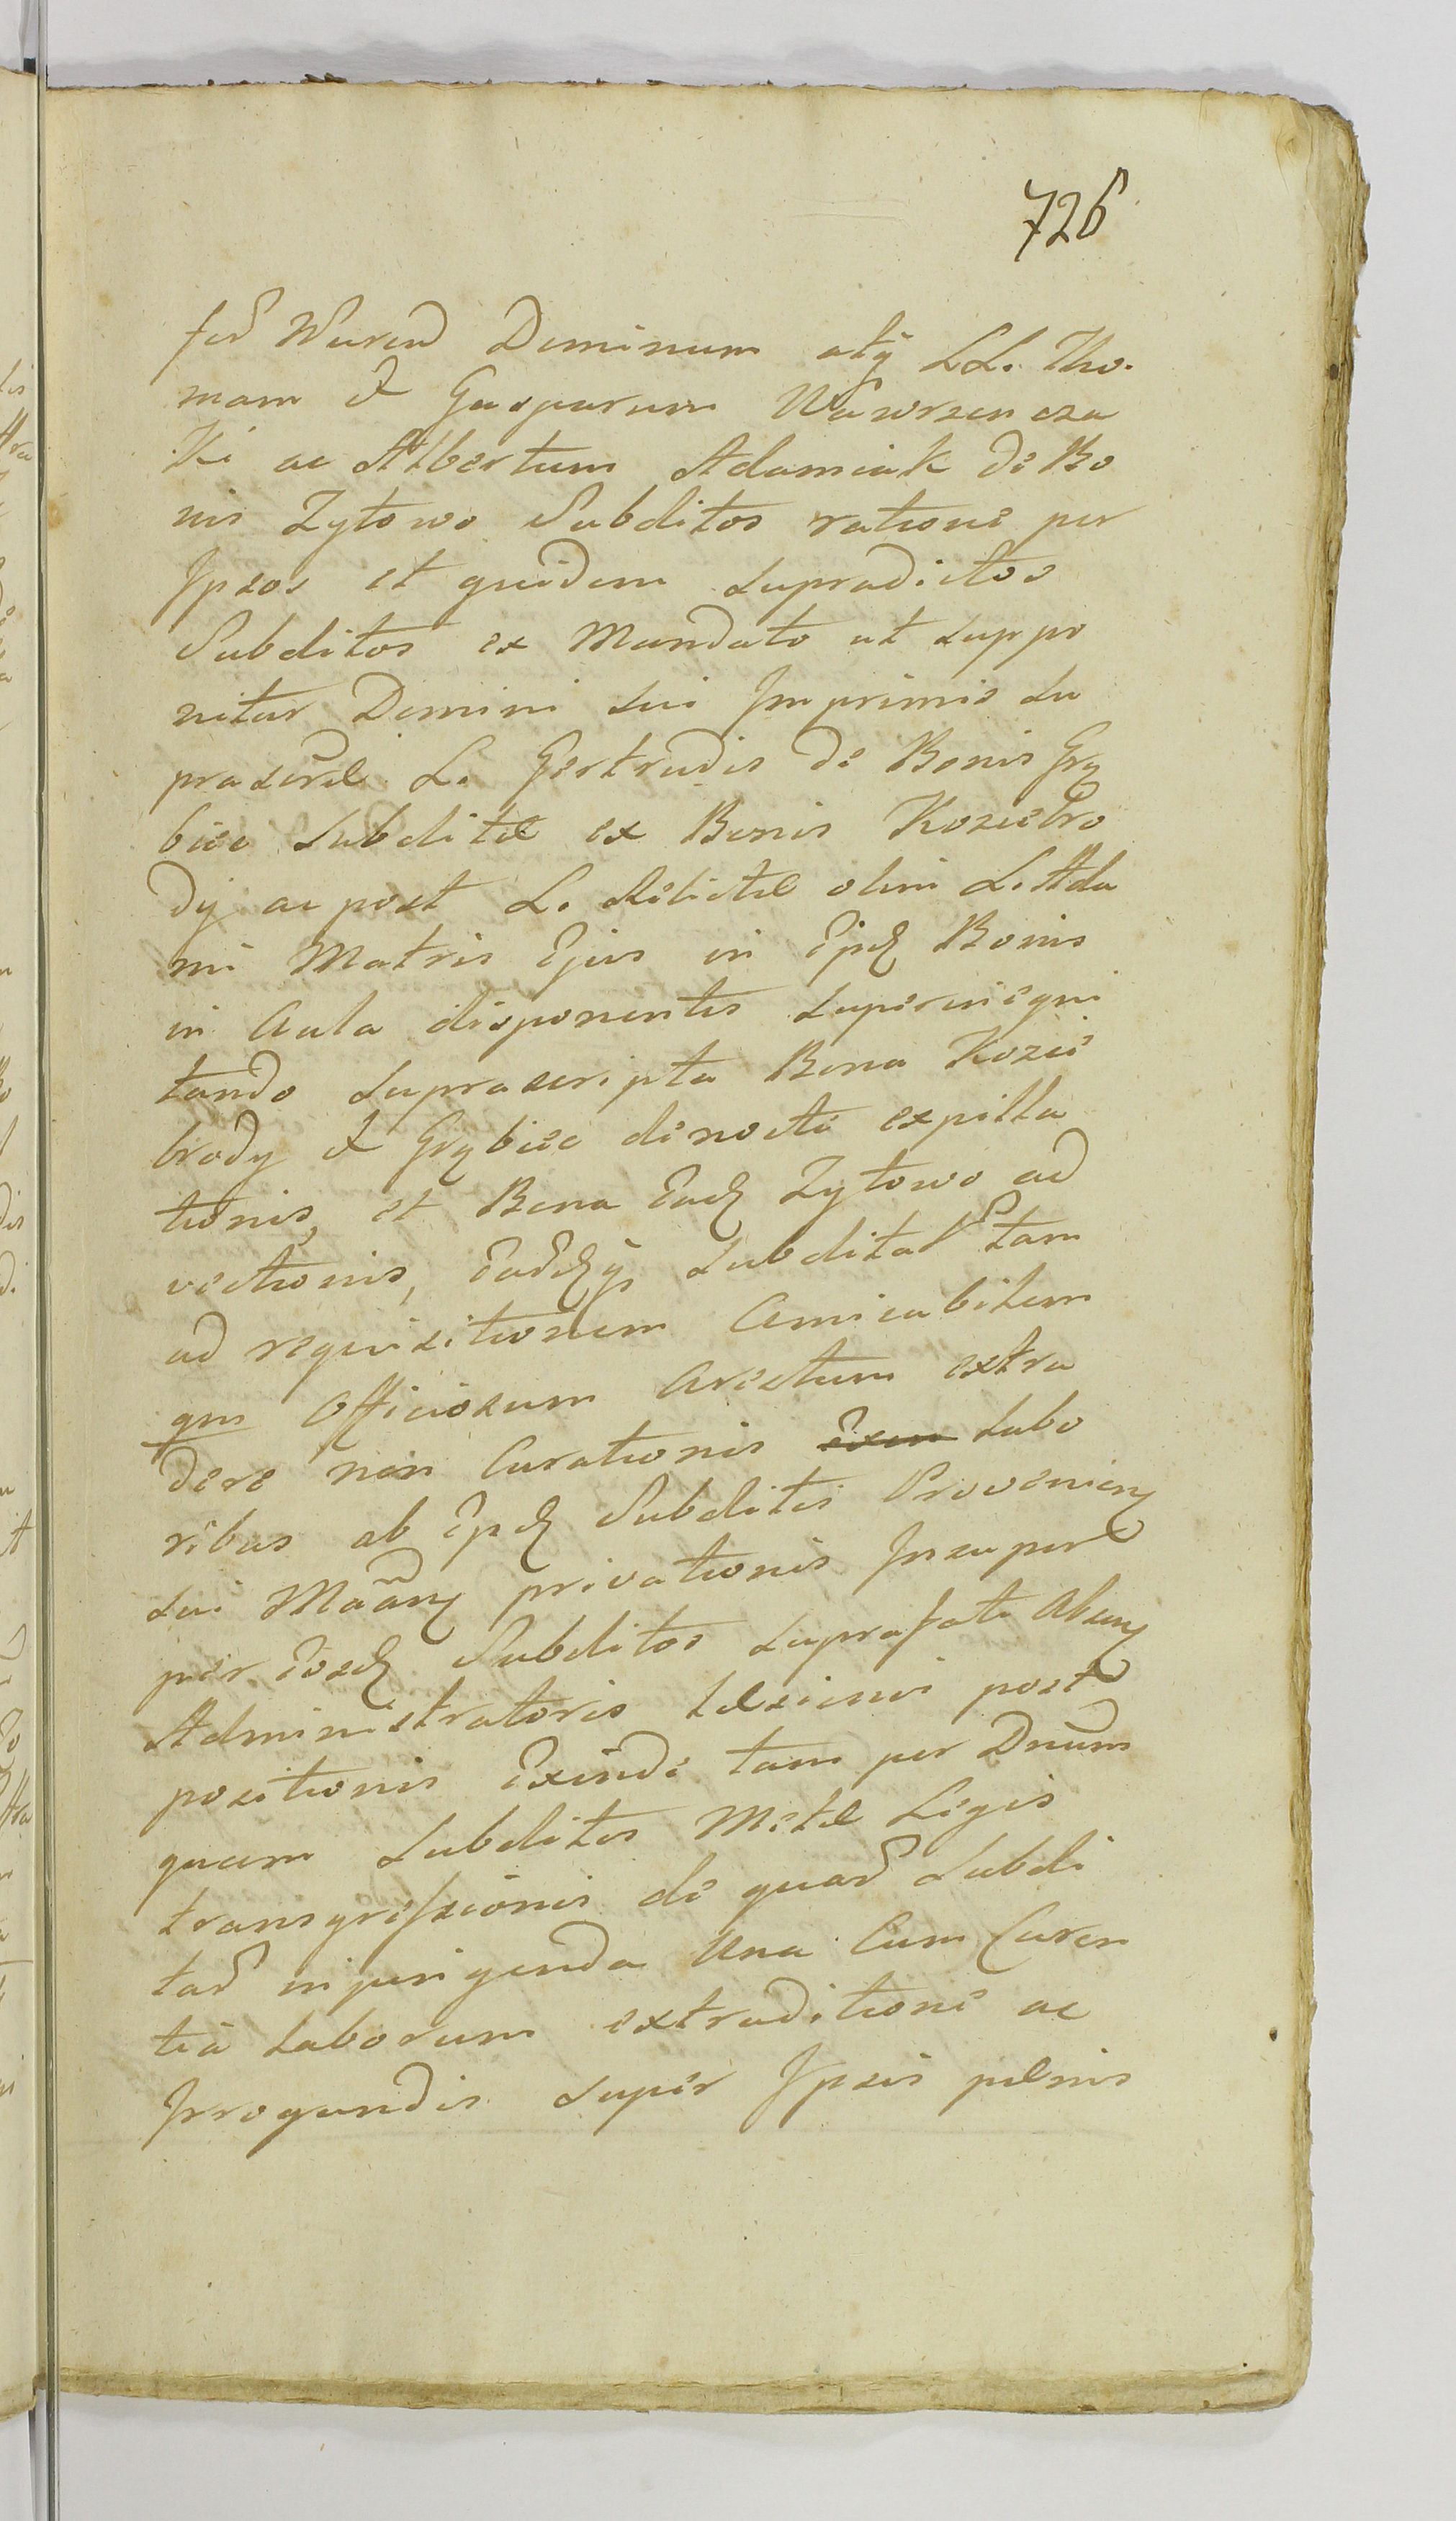 726
fed Wurend Dominum atq LL. Tho.
mam et Gasparum Wawrzencza
ki ac Albertum Adamiak de Bo
nis Zytowo Subditos ratione per
Ipsos et quidem supradictos
Subditos ex Mandato ut suppo
nitur Domini sui Imprimis su
prascrae L. Gertrudis de Bonis Grę
biec subditae ex Bonis Kozie bro
dy ac post L. Relictae olim L. Ada
mi Matris Ejus in Ijsd Bonis
in Aula disponentis superinequi
tando suprascripta Bona Kozie
brody et Grębiec de nocte expilla
tionis, et Bona Ead Zytowo ad
vectionis, Eadq subditas tam
ad requisitionem Amicabilem
qm Officiosum Arestum extra
dere non Curationis labo
ribus ab Ijsd Subditis Provenien
sui privationis Insuper
per Eosd Subditos suprafati Aleum
Administratoris laesioni post
positionis Exinde tam per Dnum
quam subditos Metae Legis
transgressionis de quas subdi
tas injungenda Una Cum Caren
tia laborum extraditione ac
Irrogandis super Ipsis paenis